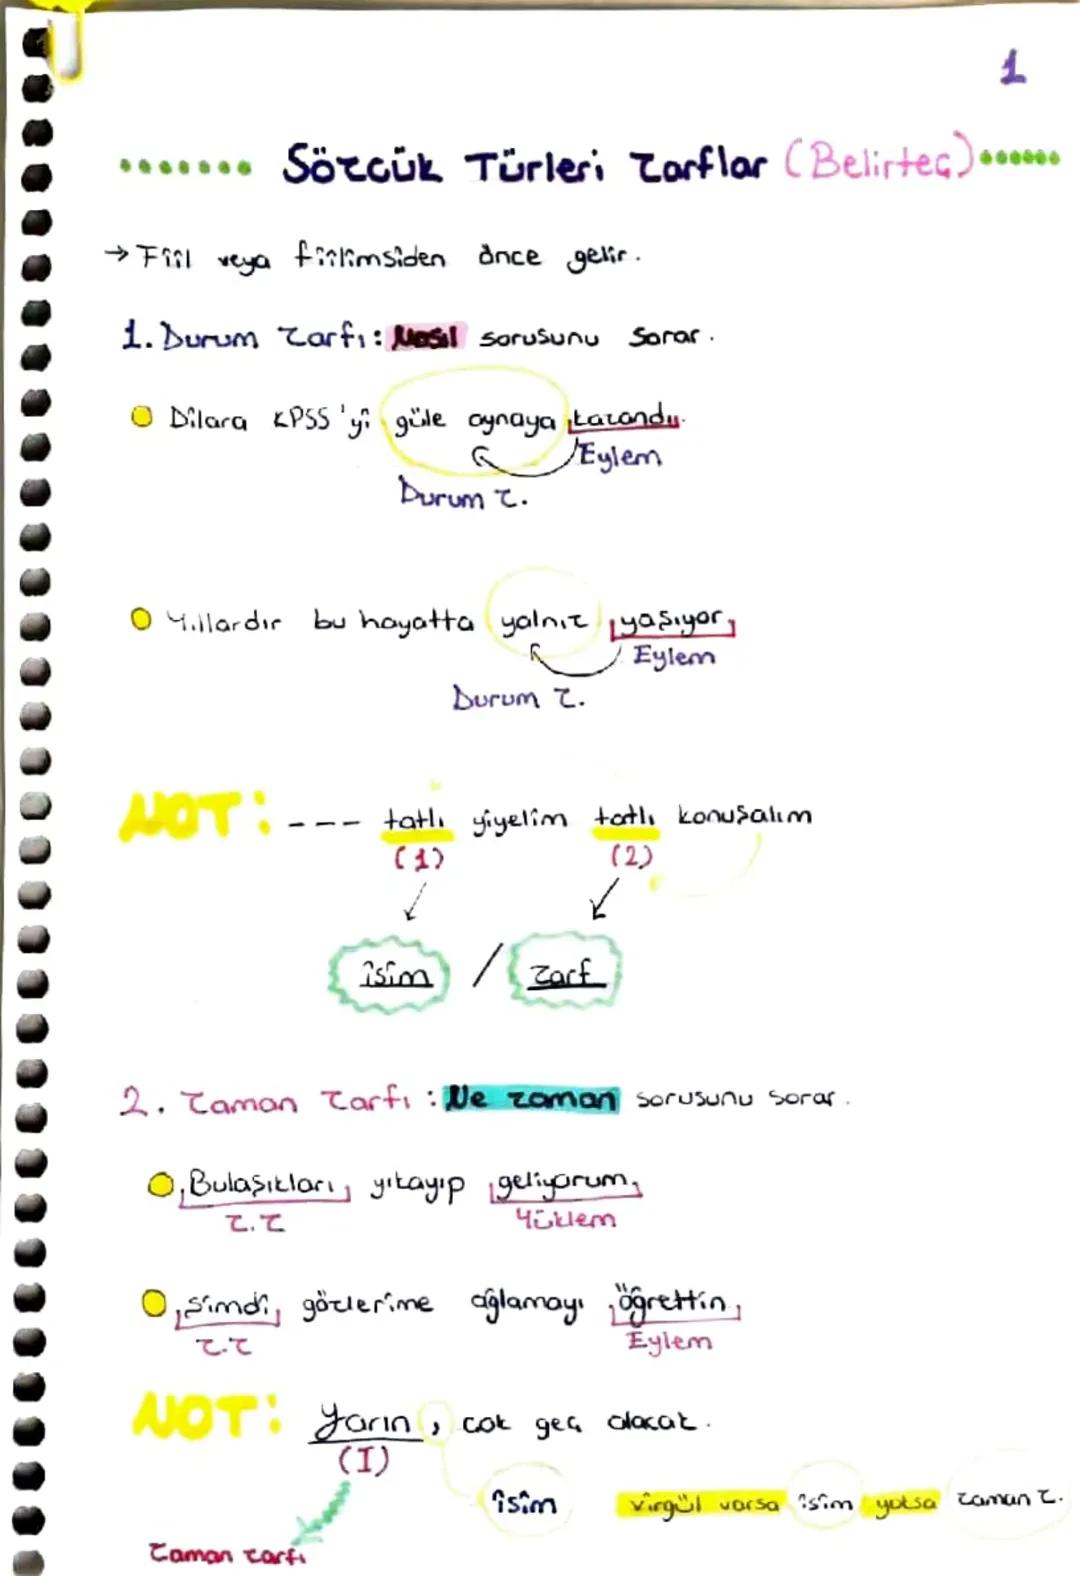 1
Sözcük Türleri Zarflar (Belirteç)
→ Fiil veya fiilimsiden önce gelir.
1. Durum Zarfı: Nasıl sorusunu sorar.
Dilara KPSS'yi güle oynaya kazandı.
Eylem
Durum Z.
Yıllardır bu hayatta yalnız yaşıyor
Eylem
Durum Z.
NOT: --- tatlı yiyelim tatlı konuşalım
(1) (2)
isim / zarf
2. Zaman Zarfı : Ne zaman sorusunu sorar.
Bulaşıkları yıkayıp geliyorum
Z.Z Yüklem
Şimdi gözlerime ağlamayı öğrettin
Z.Z Eylem
NOT: Yarın, çok geç olacak.
(I)
isim virgül varsa isim yoksa zaman Z.
Zaman zarfı